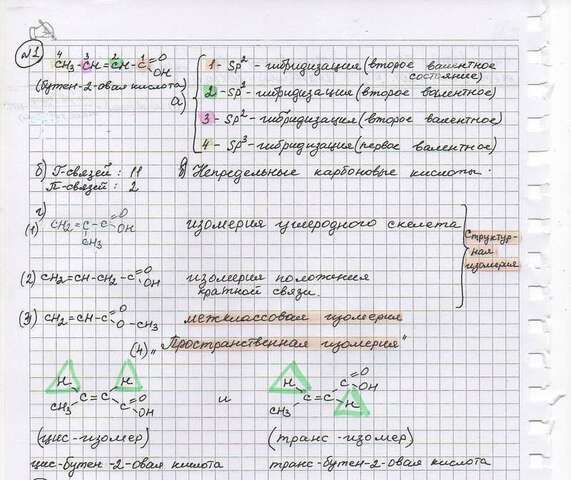 №1
4 3 2 1
CH3-CH=CH-C=O OH
(бутен-2-овая кислота)
а)
1 - Sp² - гибридизация (второе валентное состояние)
2 - Sp² - гибридизация (второе валентное)
3 - Sp² - гибридизация (второе валентное)
4 - Sp³ - гибридизация (первое валентное)
б) Г-связей : 11
П-связей : 2
в) Непредельные карбоновые кислоты.
г)
(1) CH2=C-C=O OH
CH3
изомерия углеродного скелета
(2) CH2=CH-CH2-C=O OH
изомерия положения
кратной связи.
Структур-
ная
изомерия
(3) CH2=CH-C=O O-CH3
межклассовая изомерия
(4) „Пространственная изомерия"
H H
C=C
CH3 C=O OH
и
H C=O OH
C=C
CH3 H
(цис-изомер) (транс-изомер)
цис-бутен-2-овая кислота транс-бутен-2-овая кислота